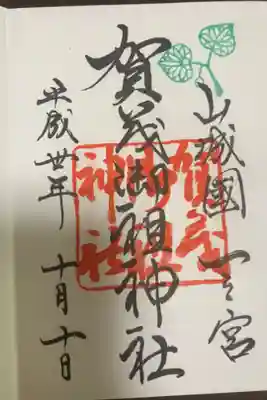 山城國一之宮
賀茂御祖神社
平成卅年 十月十日
賀茂御祖神社